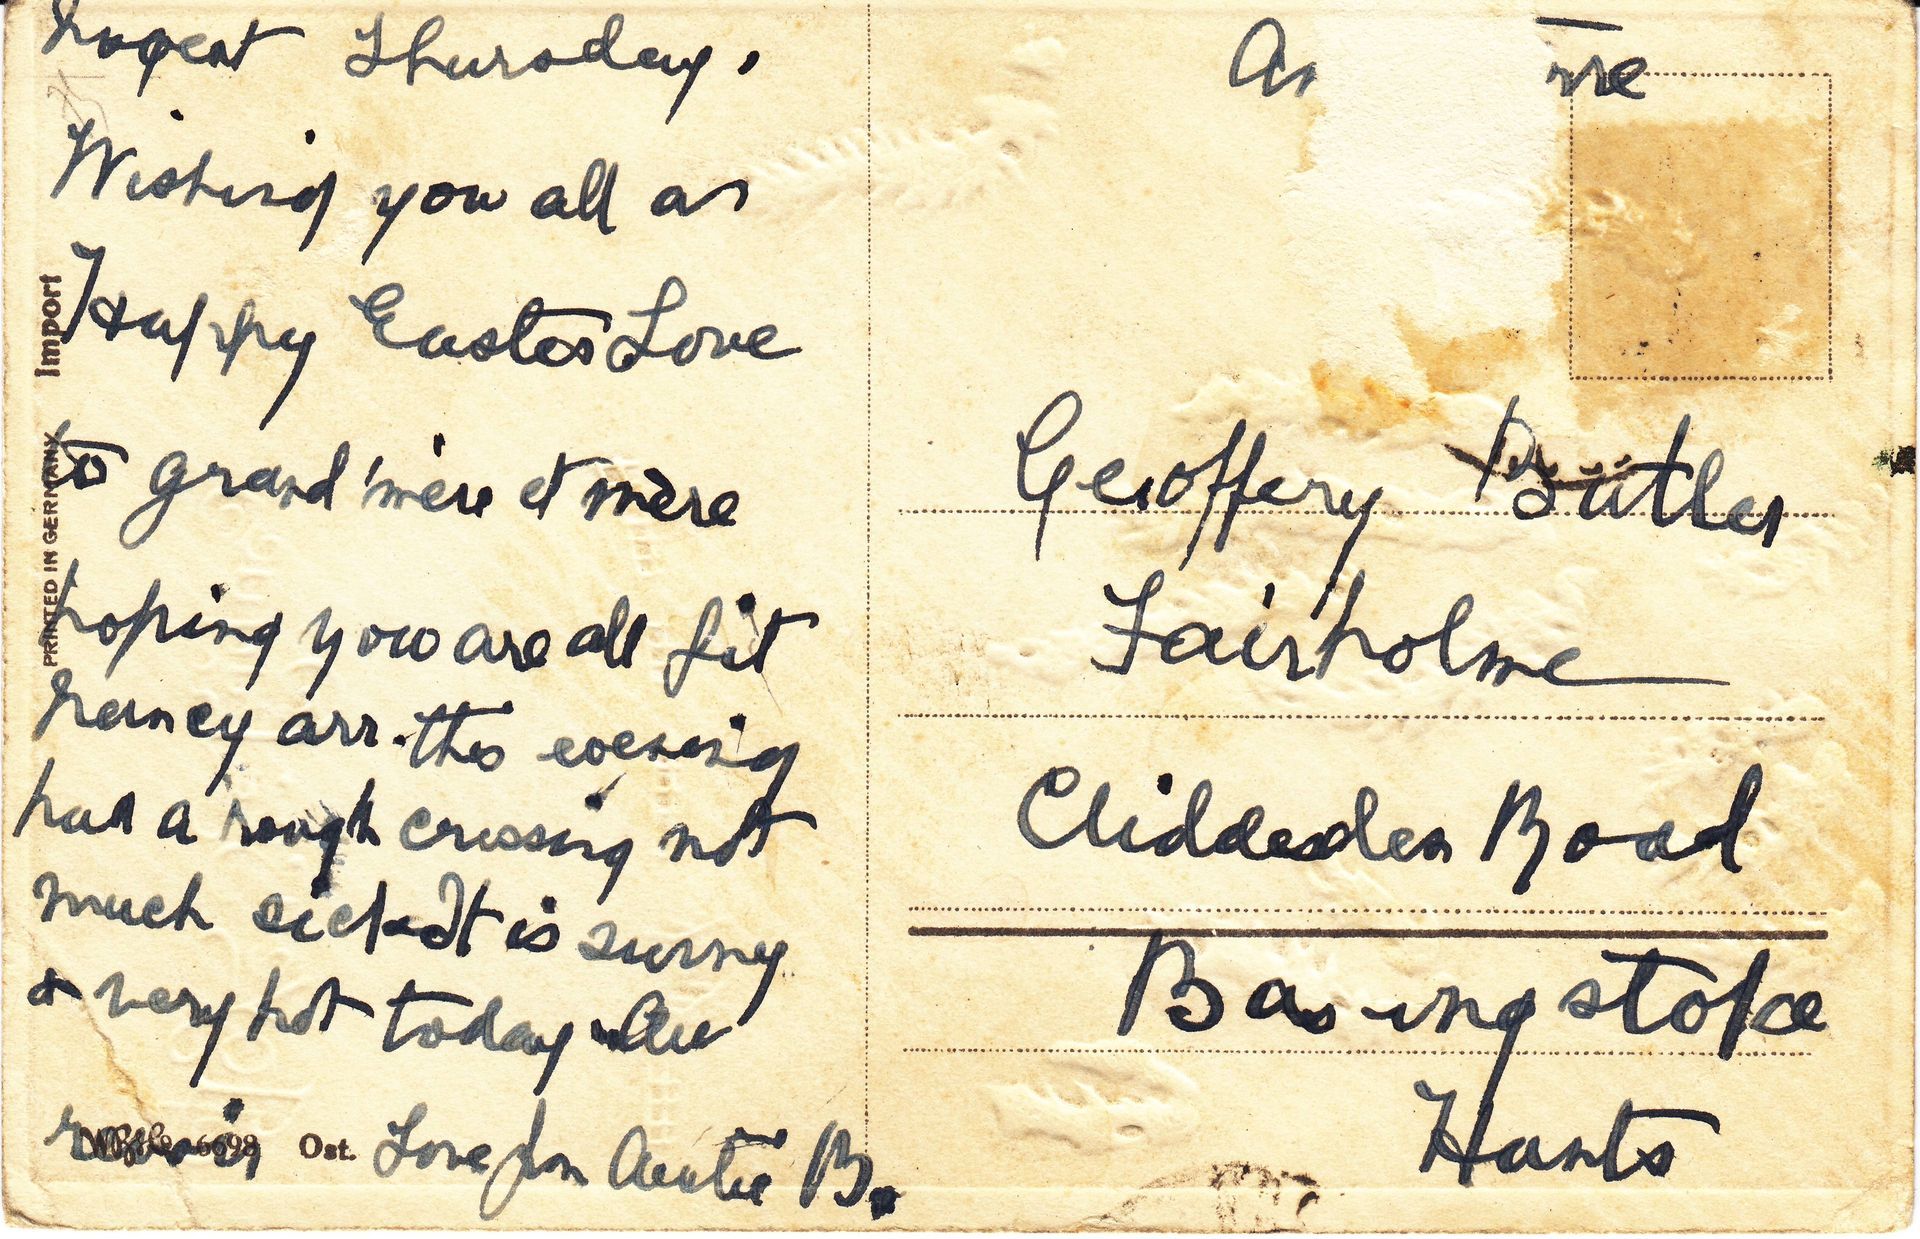 Nugent Thursday.
Wishing you all a
Happy Easter Love
to grand'mère et mère
hoping you are all fit
Nancy arr. this evening
had a rough crossing not
much sick It is sunny
& very hot today Au
revoir Love from Auntie B.
Import
PRINTED IN GERMANY
6698 Ost.
Geoffery Butler
Fairholme
Cliddesden Road
Basingstoke
Hants